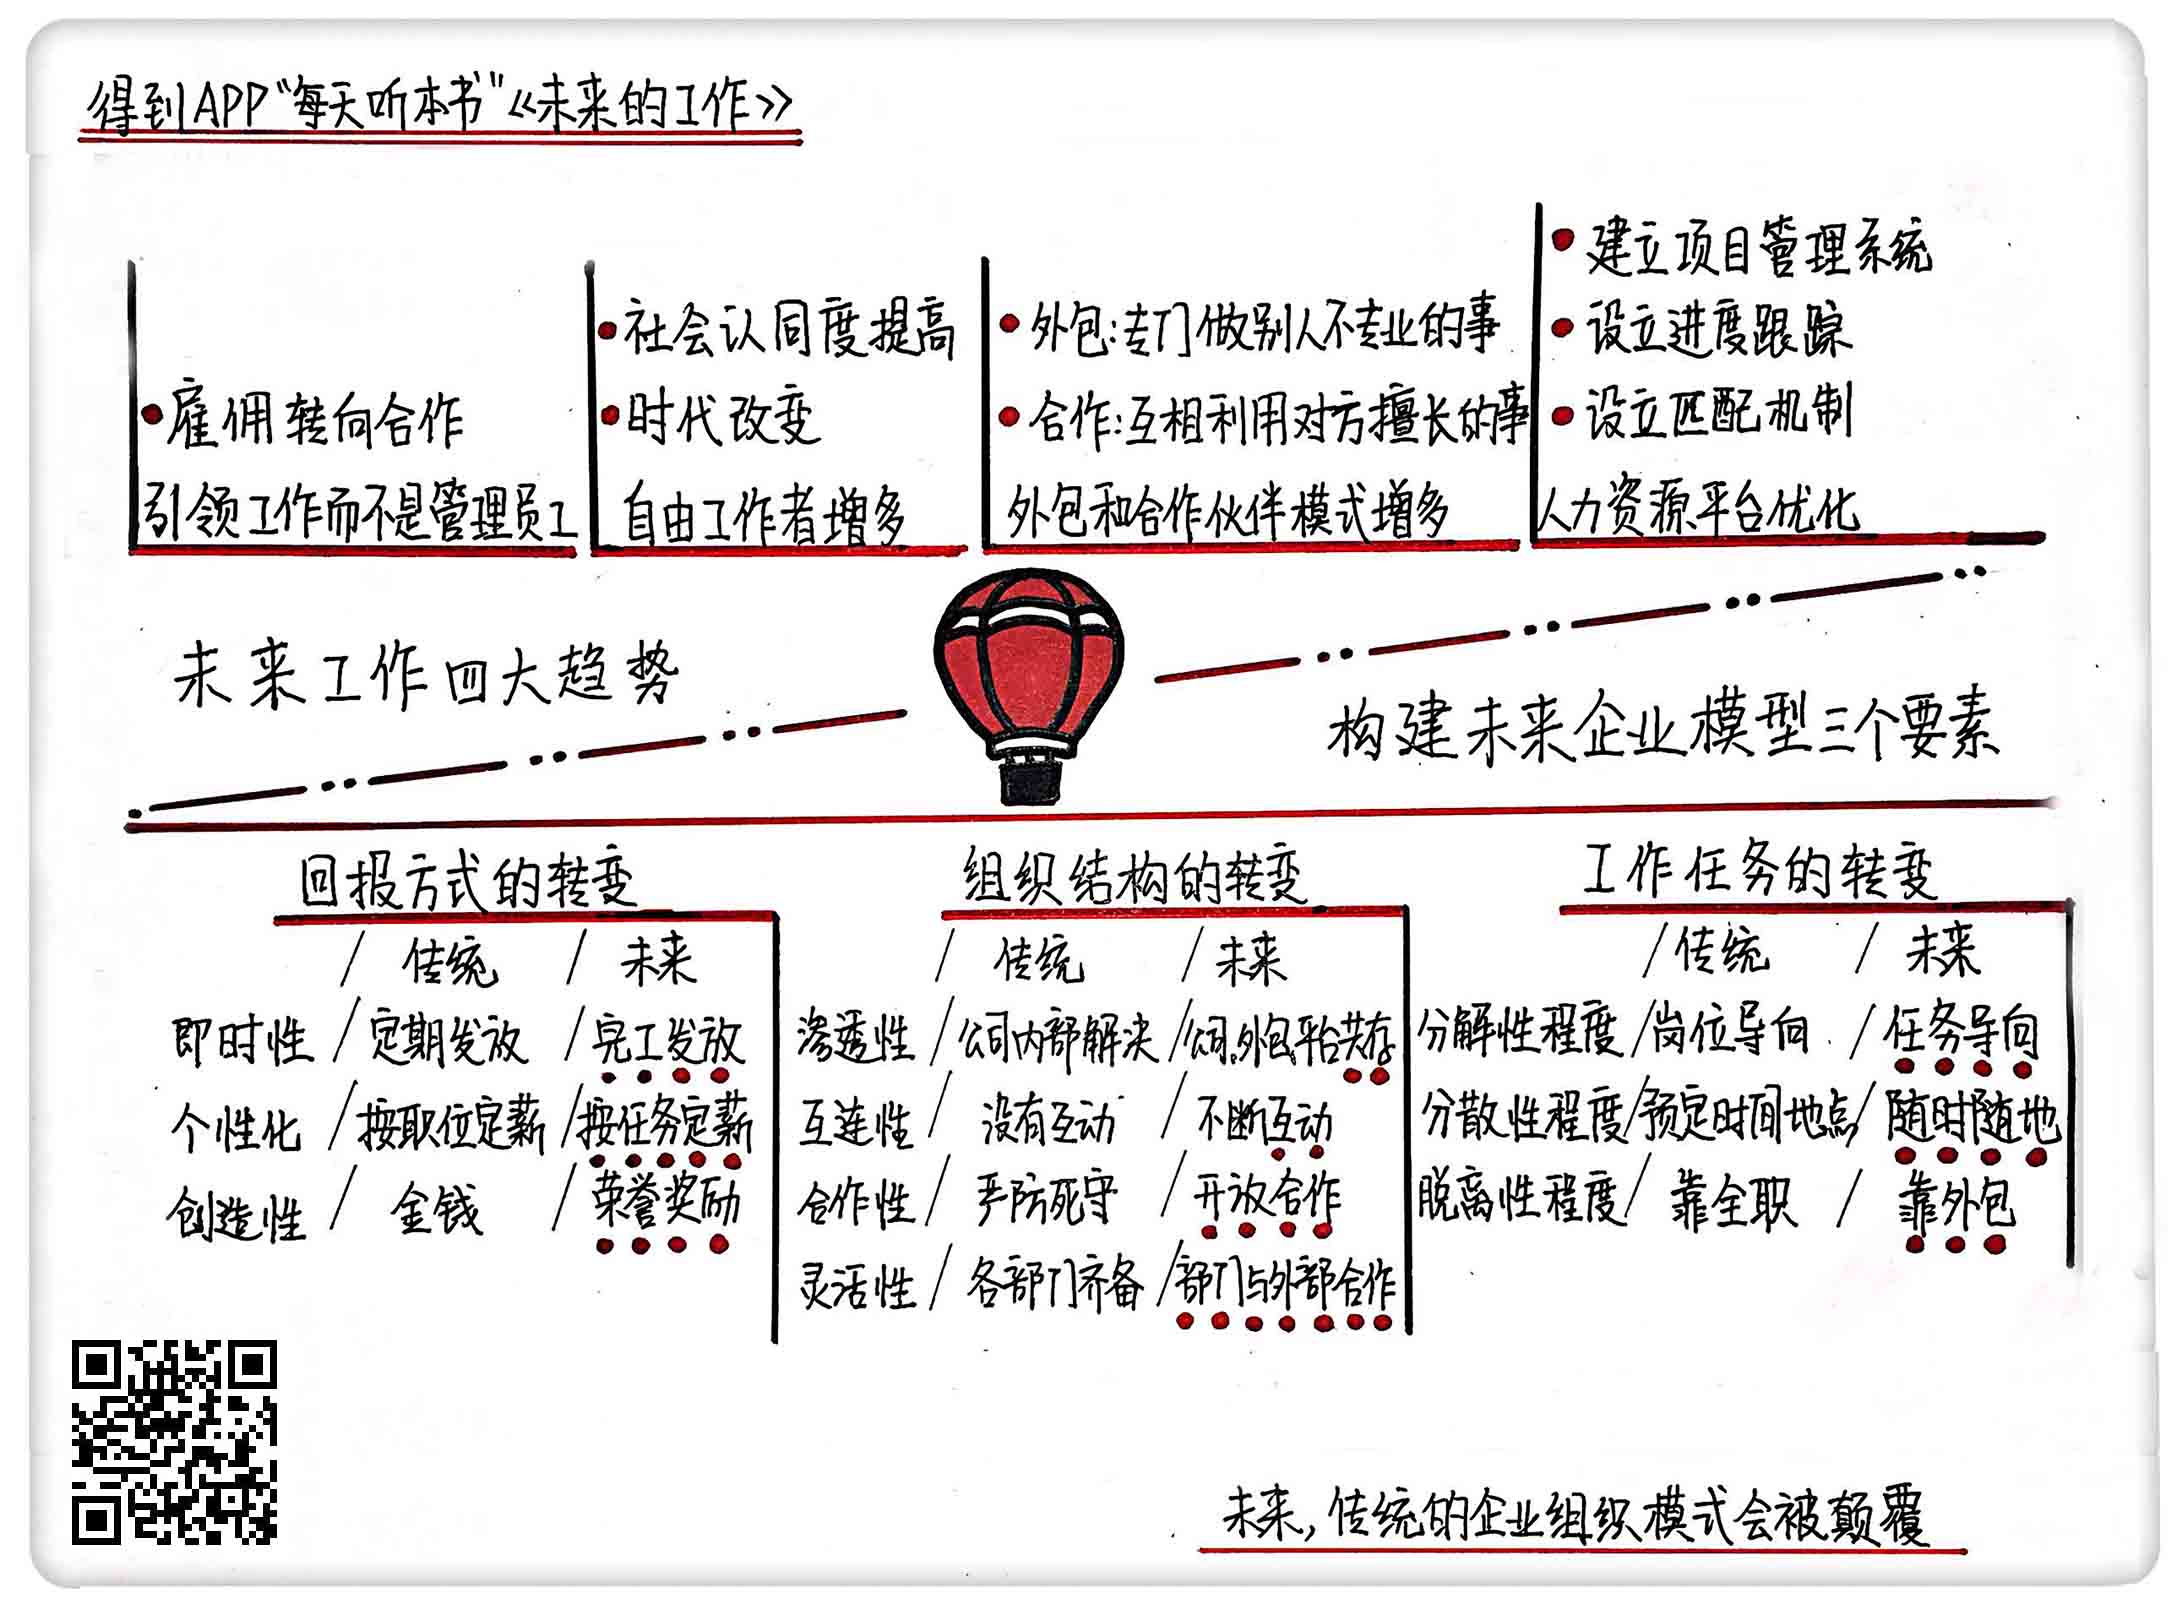 得到APP“每天听本书”《未来的工作》
雇佣转向合作
引领工作而不是管理员工
社会认同度提高
时代改变
自由工作者增多
外包:专门做别人不专业的事
合作:互相利用对方擅长的事
外包和合作伙伴模式增多
建立项目管理系统
设立进度跟踪
设立匹配机制
人力资源平台优化
未来工作四大趋势
构建未来企业模型三个要素
回报方式的转变
/ 传统 / 未来
即时性 / 定期发放 / 完工发放
个性化 / 按职位定薪 / 按任务定薪
创造性 / 金钱 / 荣誉奖励
组织结构的转变
/ 传统 / 未来
渗透性 / 公司内部解决 / 公司、外包、平台共存
互连性 / 没有互动 / 不断互动
合作性 / 严防死守 / 开放合作
灵活性 / 各部门齐备 / 部门与外部合作
工作任务的转变
/ 传统 / 未来
分解性程度 / 岗位导向 / 任务导向
分散性程度 / 预定时间地点 / 随时随地
脱离性程度 / 靠全职 / 靠外包
未来,传统的企业组织模式会被颠覆